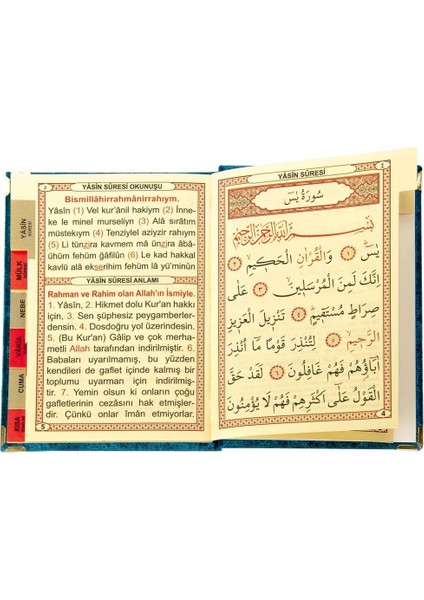 YÂSÎN SÛRESİ
سُورَةُ يٰسٓ
بِسْمِ اللّٰهِ الرَّحْمٰنِ الرَّحِيمِ
يٰسٓ ﴿١﴾ وَالْقُرْاٰنِ الْحَكِيمِ ﴿٢﴾
اِنَّكَ لَمِنَ الْمُرْسَلِينَ ﴿٣﴾ عَلٰى
صِرَاطٍ مُسْتَقِيمٍ ﴿٤﴾ تَنْزِيلَ الْعَزِيزِ
الرَّحِيمِ ﴿٥﴾ لِتُنْذِرَ قَوْمًا مَا اُنْذِرَ
اٰبَاؤُهُمْ فَهُمْ غَافِلُونَ ﴿٦﴾ لَقَدْ حَقَّ
الْقَوْلُ عَلٰى اَكْثَرِهِمْ فَهُمْ لَا يُؤْمِنُونَ
4
YÂSÎN SÛRESİ OKUNUŞU
Bismillâhirrahmânirrahıym.
Yâsîn (1) Vel kur'ânil hakiym (2) İnne-
ke le minel murseliyn (3) Alâ sırâtım
müstekıym (4) Tenziylel aziyzir rahıym
(5) Li tünzira kavmem mâ ünzira âbâ-
ühüm fehüm ğâfilûn (6) Le kad hakkal
kavlü alâ ekserihim fehüm lâ yü'minûn
YÂSÎN SÛRESİ ANLAMI
Rahman ve Rahim olan Allah'ın İsmiyle.
1. Yâsîn. 2. Hikmet dolu Kur'an hakkı
için, 3. Sen şüphesiz peygamberler-
densin. 4. Dosdoğru yol üzerindesin.
5. (Bu Kur'an) Gâlip ve çok merha-
metli Allah tarafından indirilmiştir. 6.
Babaları uyarılmamış, bu yüzden
kendileri de gaflet içinde kalmış bir
toplumu uyarman için indirilmiş-
tir. 7. Yemin olsun ki onların çoğu
gafletlerinin cezasını hak etmişler-
dir. Çünkü onlar îmân etmiyorlar.
5
YÂSÎN
SÛRESİ
MÜLK
NEBE
VAKIA
CUMA
KISA